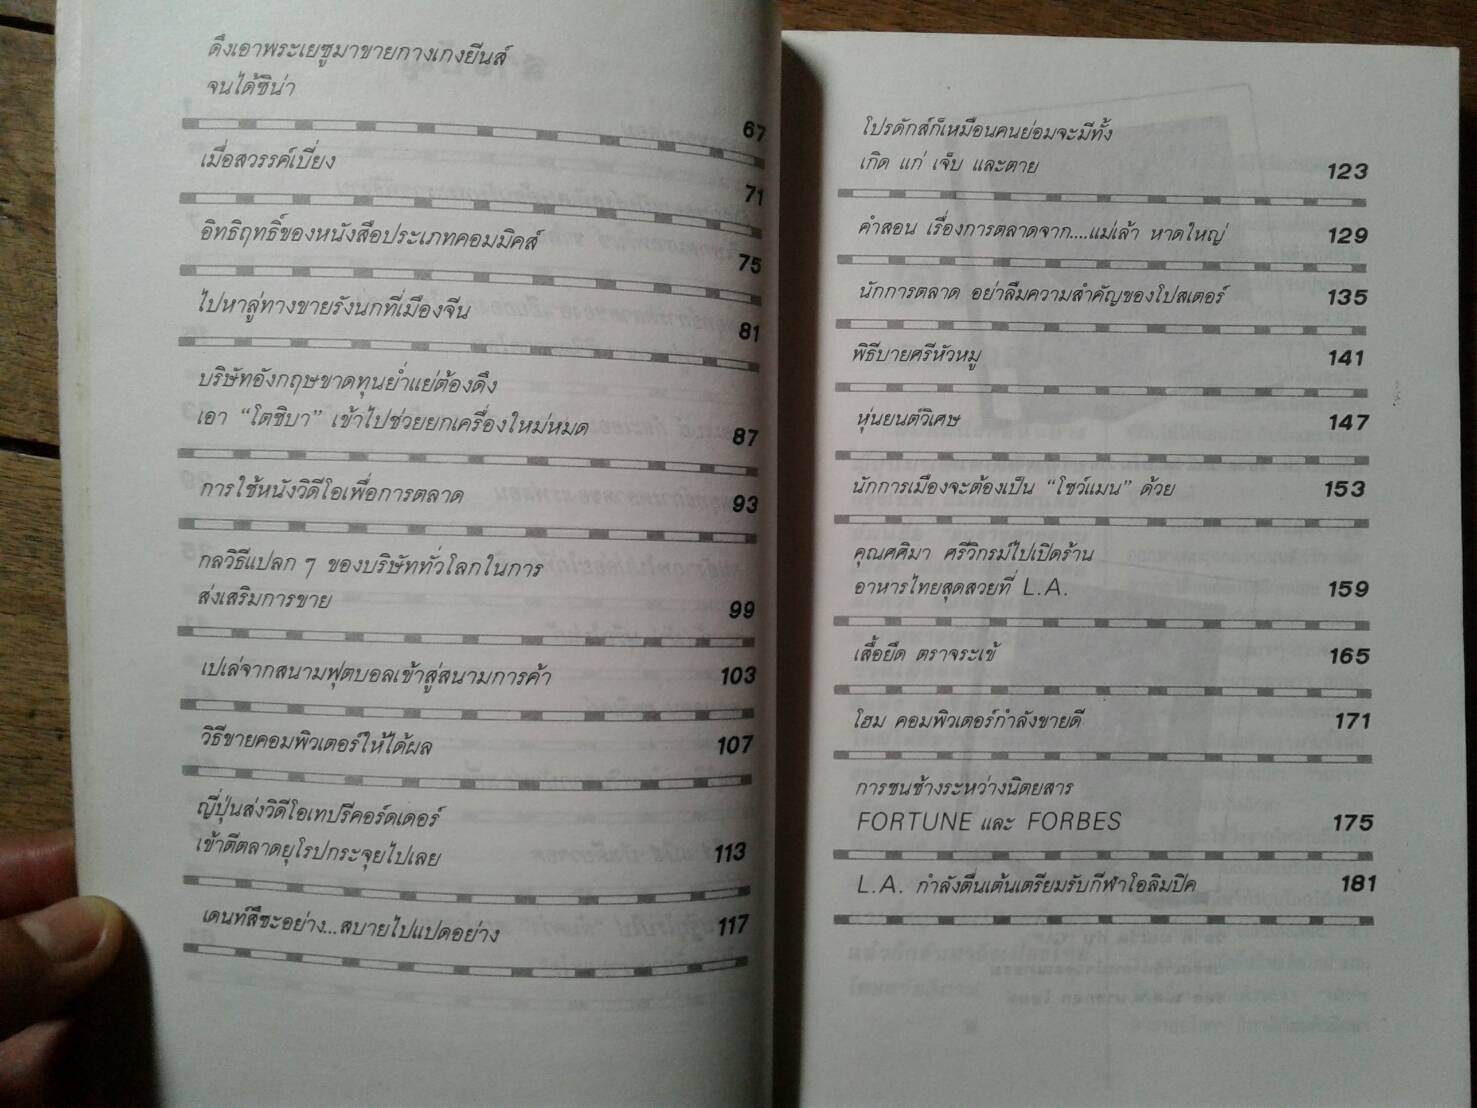 ดึงเอาพระเยซูมาขายกางเกงยีนส์
จนได้ซิน่า
67
เมื่อสวรรค์เบี่ยง
71
อิทธิฤทธิ์ของหนังสือประเภทคอมมิคส์
75
ไปหาลู่ทางขายรังนกที่เมืองจีน
81
บริษัทอังกฤษขาดทุนย่ำแย่ต้องดึง
เอา “โตชิบา” เข้าไปช่วยยกเครื่องใหม่หมด
87
การใช้หนังวิดีโอเพื่อการตลาด
93
กลวิธีแปลก ๆ ของบริษัททั่วโลกในการ
ส่งเสริมการขาย
99
เปเล่จากสนามฟุตบอลเข้าสู่สนามการค้า 103
วิธีขายคอมพิวเตอร์ให้ได้ผล 107
ญี่ปุ่นส่งวิดีโอเทปรีคอร์ดเดอร์
เข้าตีตลาดยุโรปกระจุยไปเลย 113
เดนท์สึซะอย่าง...สบายไปแปดอย่าง 117
โปรดักส์ก็เหมือนคนย่อมจะมีทั้ง
เกิด แก่ เจ็บ และตาย 123
คำสอน เรื่องการตลาดจาก....แม่เล้า หาดใหญ่ 129
นักการตลาด อย่าลืมความสำคัญของโปสเตอร์ 135
พิธีบายศรีหัวหมู 141
หุ่นยนต์วิเศษ 147
นักการเมืองจะต้องเป็น “โชว์แมน” ด้วย 153
คุณศศิมา ศรีวิกรม์ไปเปิดร้าน
อาหารไทยสุดสวยที่ L.A. 159
เสื้อยืด ตราจระเข้ 165
โฮม คอมพิวเตอร์กำลังขายดี 171
การชนช้างระหว่างนิตยสาร
FORTUNE และ FORBES 175
L.A. กำลังตื่นเต้นเตรียมรับกีฬาโอลิมปิค 181